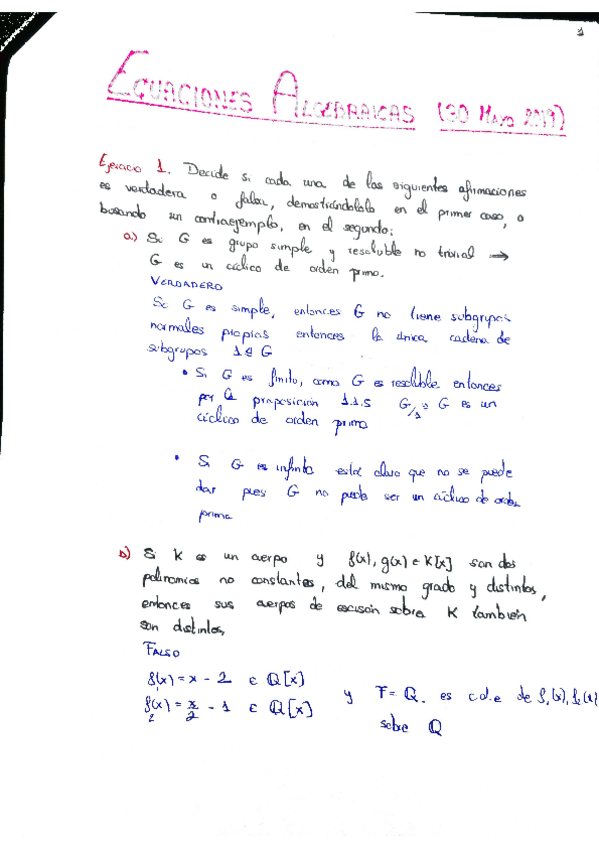 1
ECUACIONES ALGEBRAICAS (30 Mayo 2019)
Ejercicio 1. Decide si cada una de las siguientes afirmaciones
es verdadera o falsa, demostrándolo en el primer caso, o
buscando un contraejemplo, en el segundo:
a) Si G es grupo simple y resoluble no trivial →
G es un cíclico de orden primo.
VERDADERO
Si G es simple, entonces G no tiene subgrupos
normales propios entonces la única cadena de
subgrupos 1 ⊴ G
• Si G es finito, como G es resoluble entonces
por la proposición 1.1.5 G/1 ≅ G es un
cíclico de orden primo
• Si G es infinito está claro que no se puede
dar pues G no puede ser un cíclico de orden
primo
b) Si K es un cuerpo y f(x), g(x) ∈ K[x] son dos
polinomios no constantes, del mismo grado y distintos,
entonces sus cuerpos de escisión sobre K también
son distintos,
FALSO
f₁(x) = x - 2 ∈ Q[x]
f₂(x) = x/2 - 1 ∈ Q[x] y F = Q. es c.d.e de f₁(x), f₂(x)
sobre Q